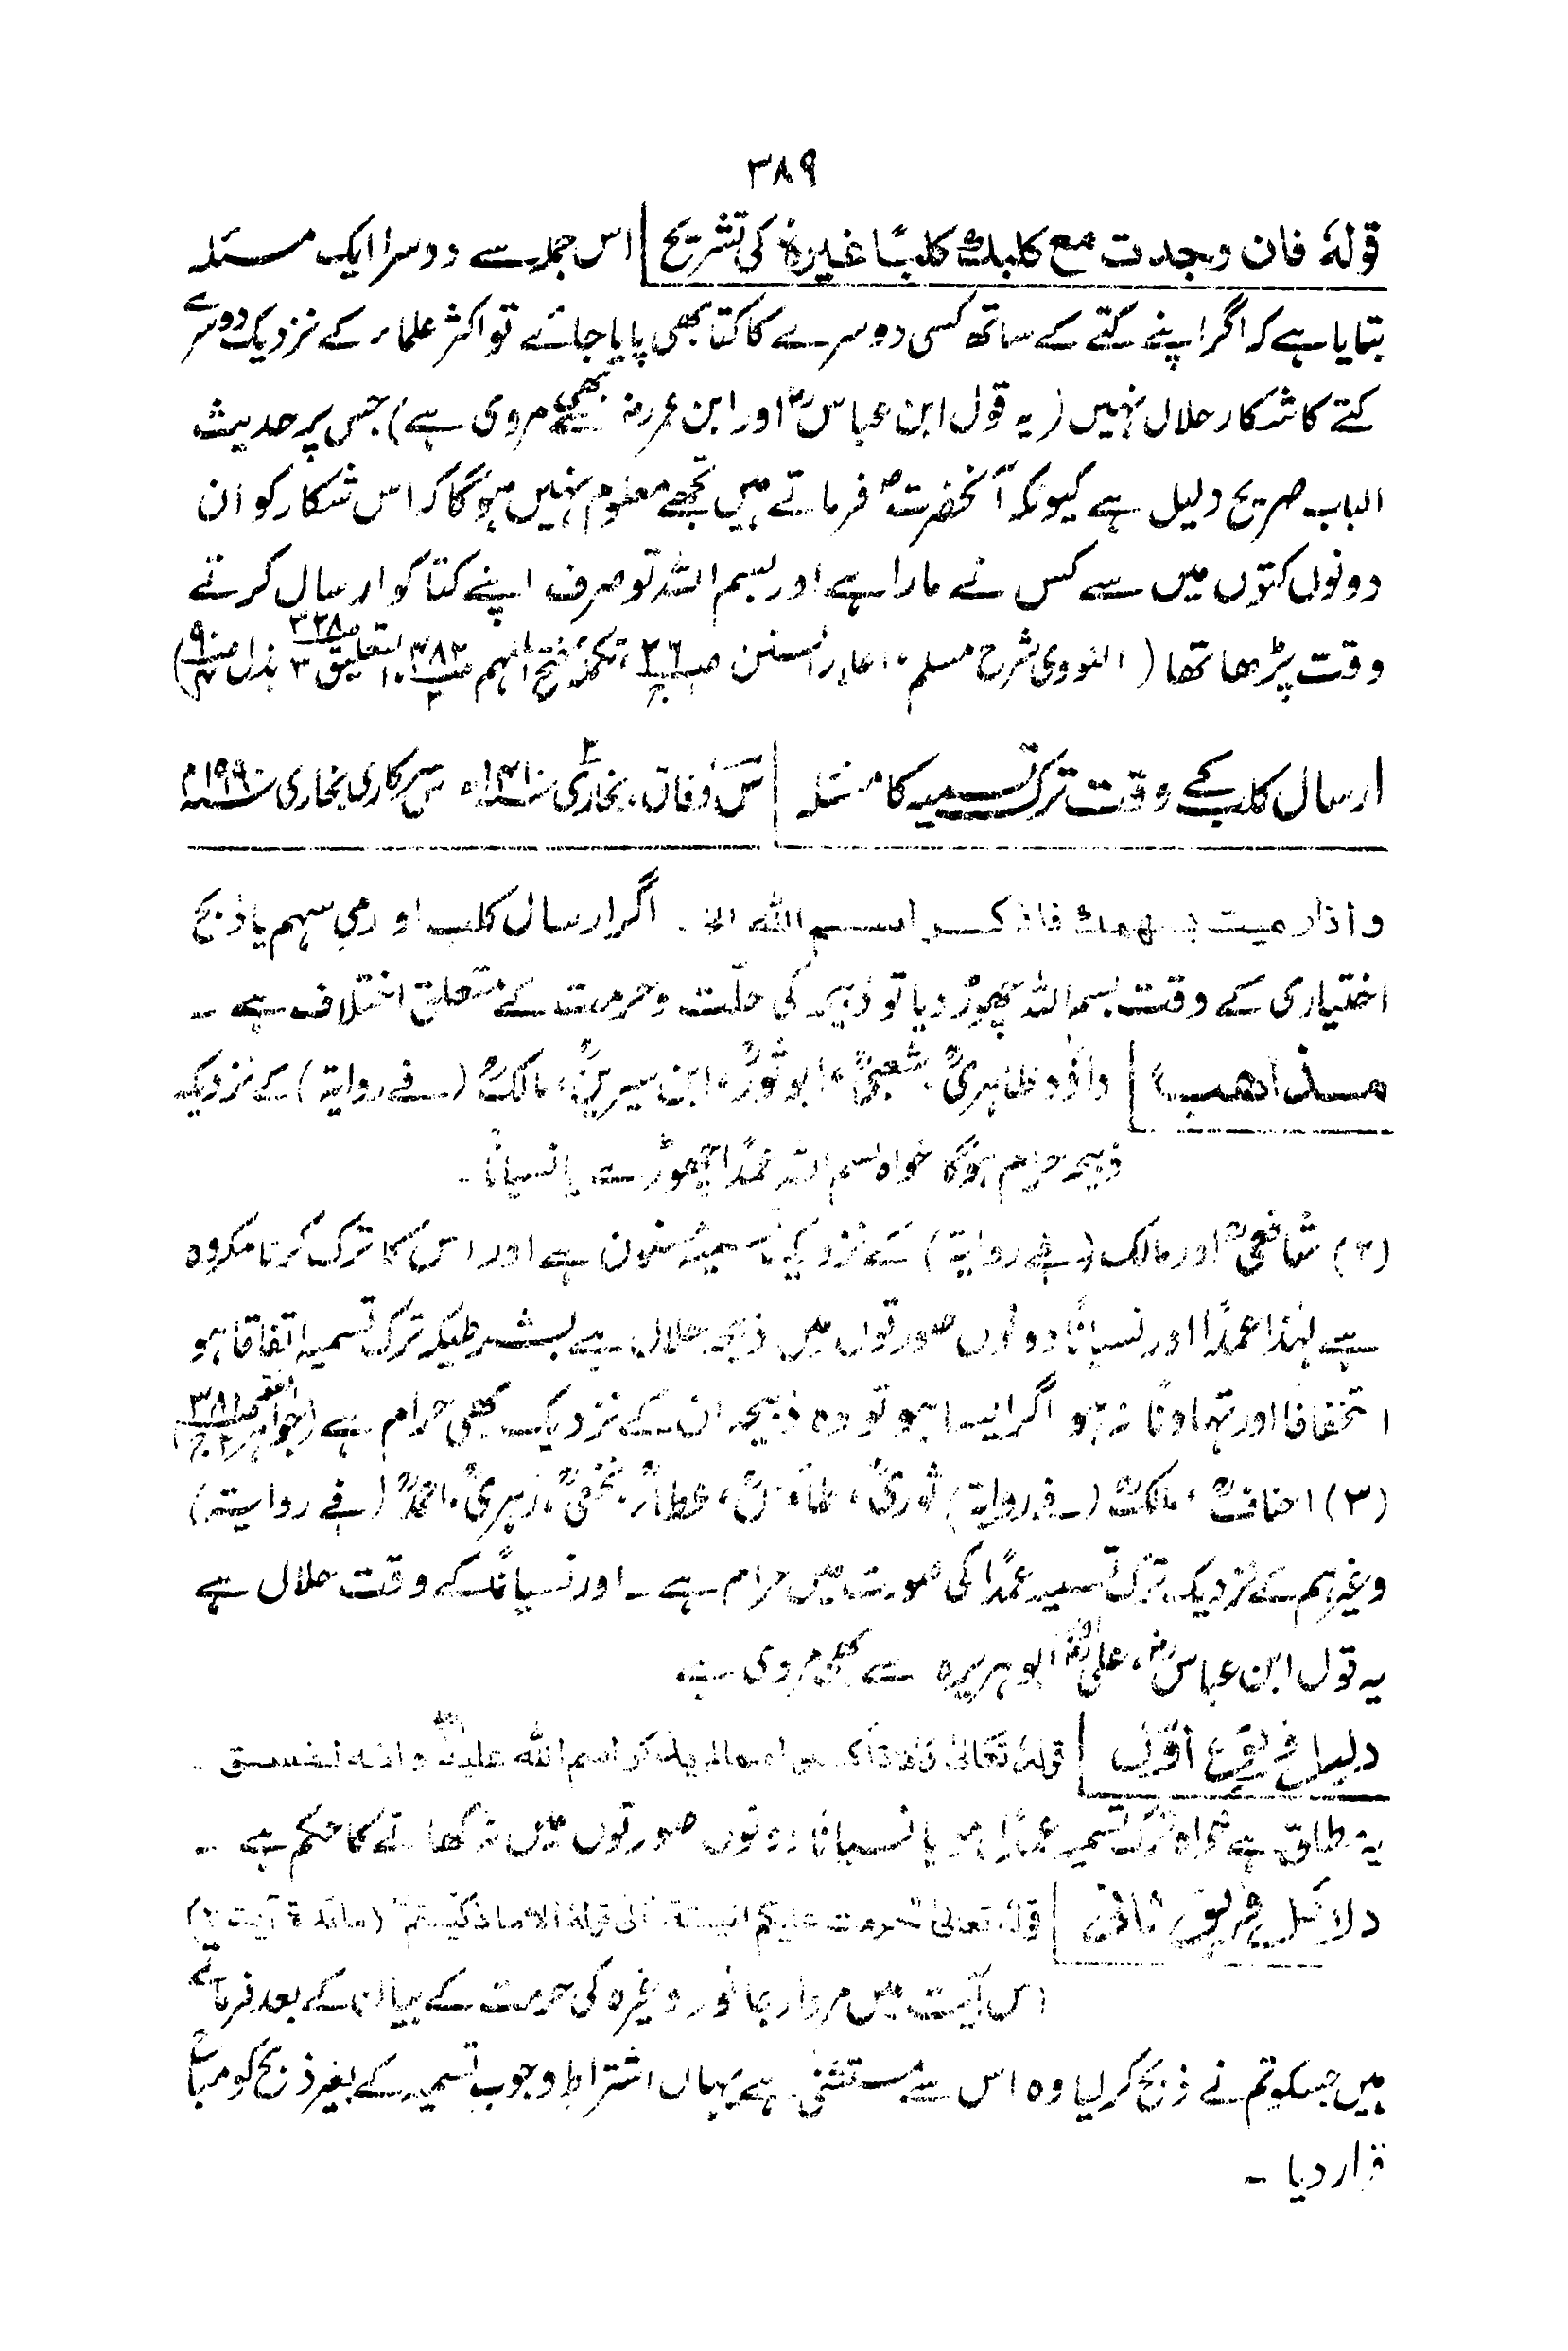 ۳۸۹
قولہٗ فان وجدت مع کلبک کلبًا غیرہٗ کی تشریح اس جملہ سے دوسرا ایک مسئلہ
بتایا ہے کہ اگر اپنے کتے کے ساتھ کسی دوسرے کا کتا بھی پایا جائے تو اکثر علماء کے نزدیک دوسرے
کتے کا شکار حلال نہیں (یہ قول ابن عباسؓ اور ابن عمرؓ سے بھی مروی ہے) جس پر حدیث
الباب صریح دلیل ہے کیونکہ آنحضرتؐ فرماتے ہیں تجھے معلوم نہیں ہوگا کہ اس شکار کو ان
دونوں کتوں میں سے کس نے مارا ہے اور بسم اللہ تو صرف اپنے کتا کو ارسال کرتے
وقت پڑھا تھا (النووی شرح مسلم، اعلاء السنن ص۲۶، تکملہ فتح الملہم ص۳۸۲، التعلیق ص۳۲۸ ۳ بذل ص۹۰)
ارسال کلب کے وقت ترک تسمیہ کا مسئلہ س، وفاق، بخاری ۲ سرکاری بخاری ۱۹۹۰م
واذا رمیت بسھمک فاذکر اسم اللہ الخ۔ اگر ارسال کلب او رمی سہم یا ذبح
اختیاری کے وقت بسم اللہ چھوڑ دیا تو ذبیحہ کی حلّت و حرمت کے متعلق اختلاف ہے ۔
مذاھب داؤد ظاہریؒ، شعبیؒ، ابو ثورؒ، ابن سیرینؒ، مالکؒ (فے روایۃ) کے نزدیک
ذبیحہ حرام ہوگا خواہ بسم اللہ عمدًا چھوڑے یا نسیانًا۔
(۲) شافعیؒ اور مالک (فے روایۃ) کے نزدیک تسمیہ مسنون ہے اور اس کا ترک کرنا مکروہ
ہے لہٰذا عمدًا اور نسیانًا دونوں صورتوں میں ذبیحہ حلال ہے بشرطیکہ ترک تسمیہ اتفاقا ہو
استخفافا اور تہاونًا نہ ہو اگر ایسا ہو تو وہ ذبیحہ ان کے نزدیک بھی حرام ہے (جواہر الفقہ ص۳۸۱ ج۲)
(۳) احنافؒ، مالکؒ (فے روایۃ) ثوریؒ، طاؤسؒ، عطاءؒ، نخعیؒ، زہریؒ، احمدؒ (فے روایۃ)
وغیرہم کے نزدیک ترک تسمیہ عمدًا کی صورت میں حرام ہے ۔ اور نسیانًا کے وقت حلال ہے
یہ قول ابن عباسؓ، علیؓ اور ابوہریرہ سے بھی مروی ہے
دلیل فریق اوّل قولہٗ تعالیٰ ولا تأکلوا مما لم یذکر اسم اللہ علیہ وانہ لفسق ۔
یہ مطلق ہے خواہ ترک تسمیہ عمدًا ہو یا نسیانا دونوں صورتوں میں نہ کھانے کا حکم ہے ۔
دلائل فریق ثانی قولہ تعالیٰ حرمت علیکم المیتۃ الی قولہ الا ما ذکیتم (مائدۃ آیت)
اس آیت میں مردار جانور وغیرہ کی حرمت کے بیان کے بعد فرماتے
ہیں جسکو تم نے ذبح کر لیا وہ اس سے مستثنیٰ ہے یہاں اشتراط وجوب تسمیہ کے بغیر ذبح کو مباح
قرار دیا ۔